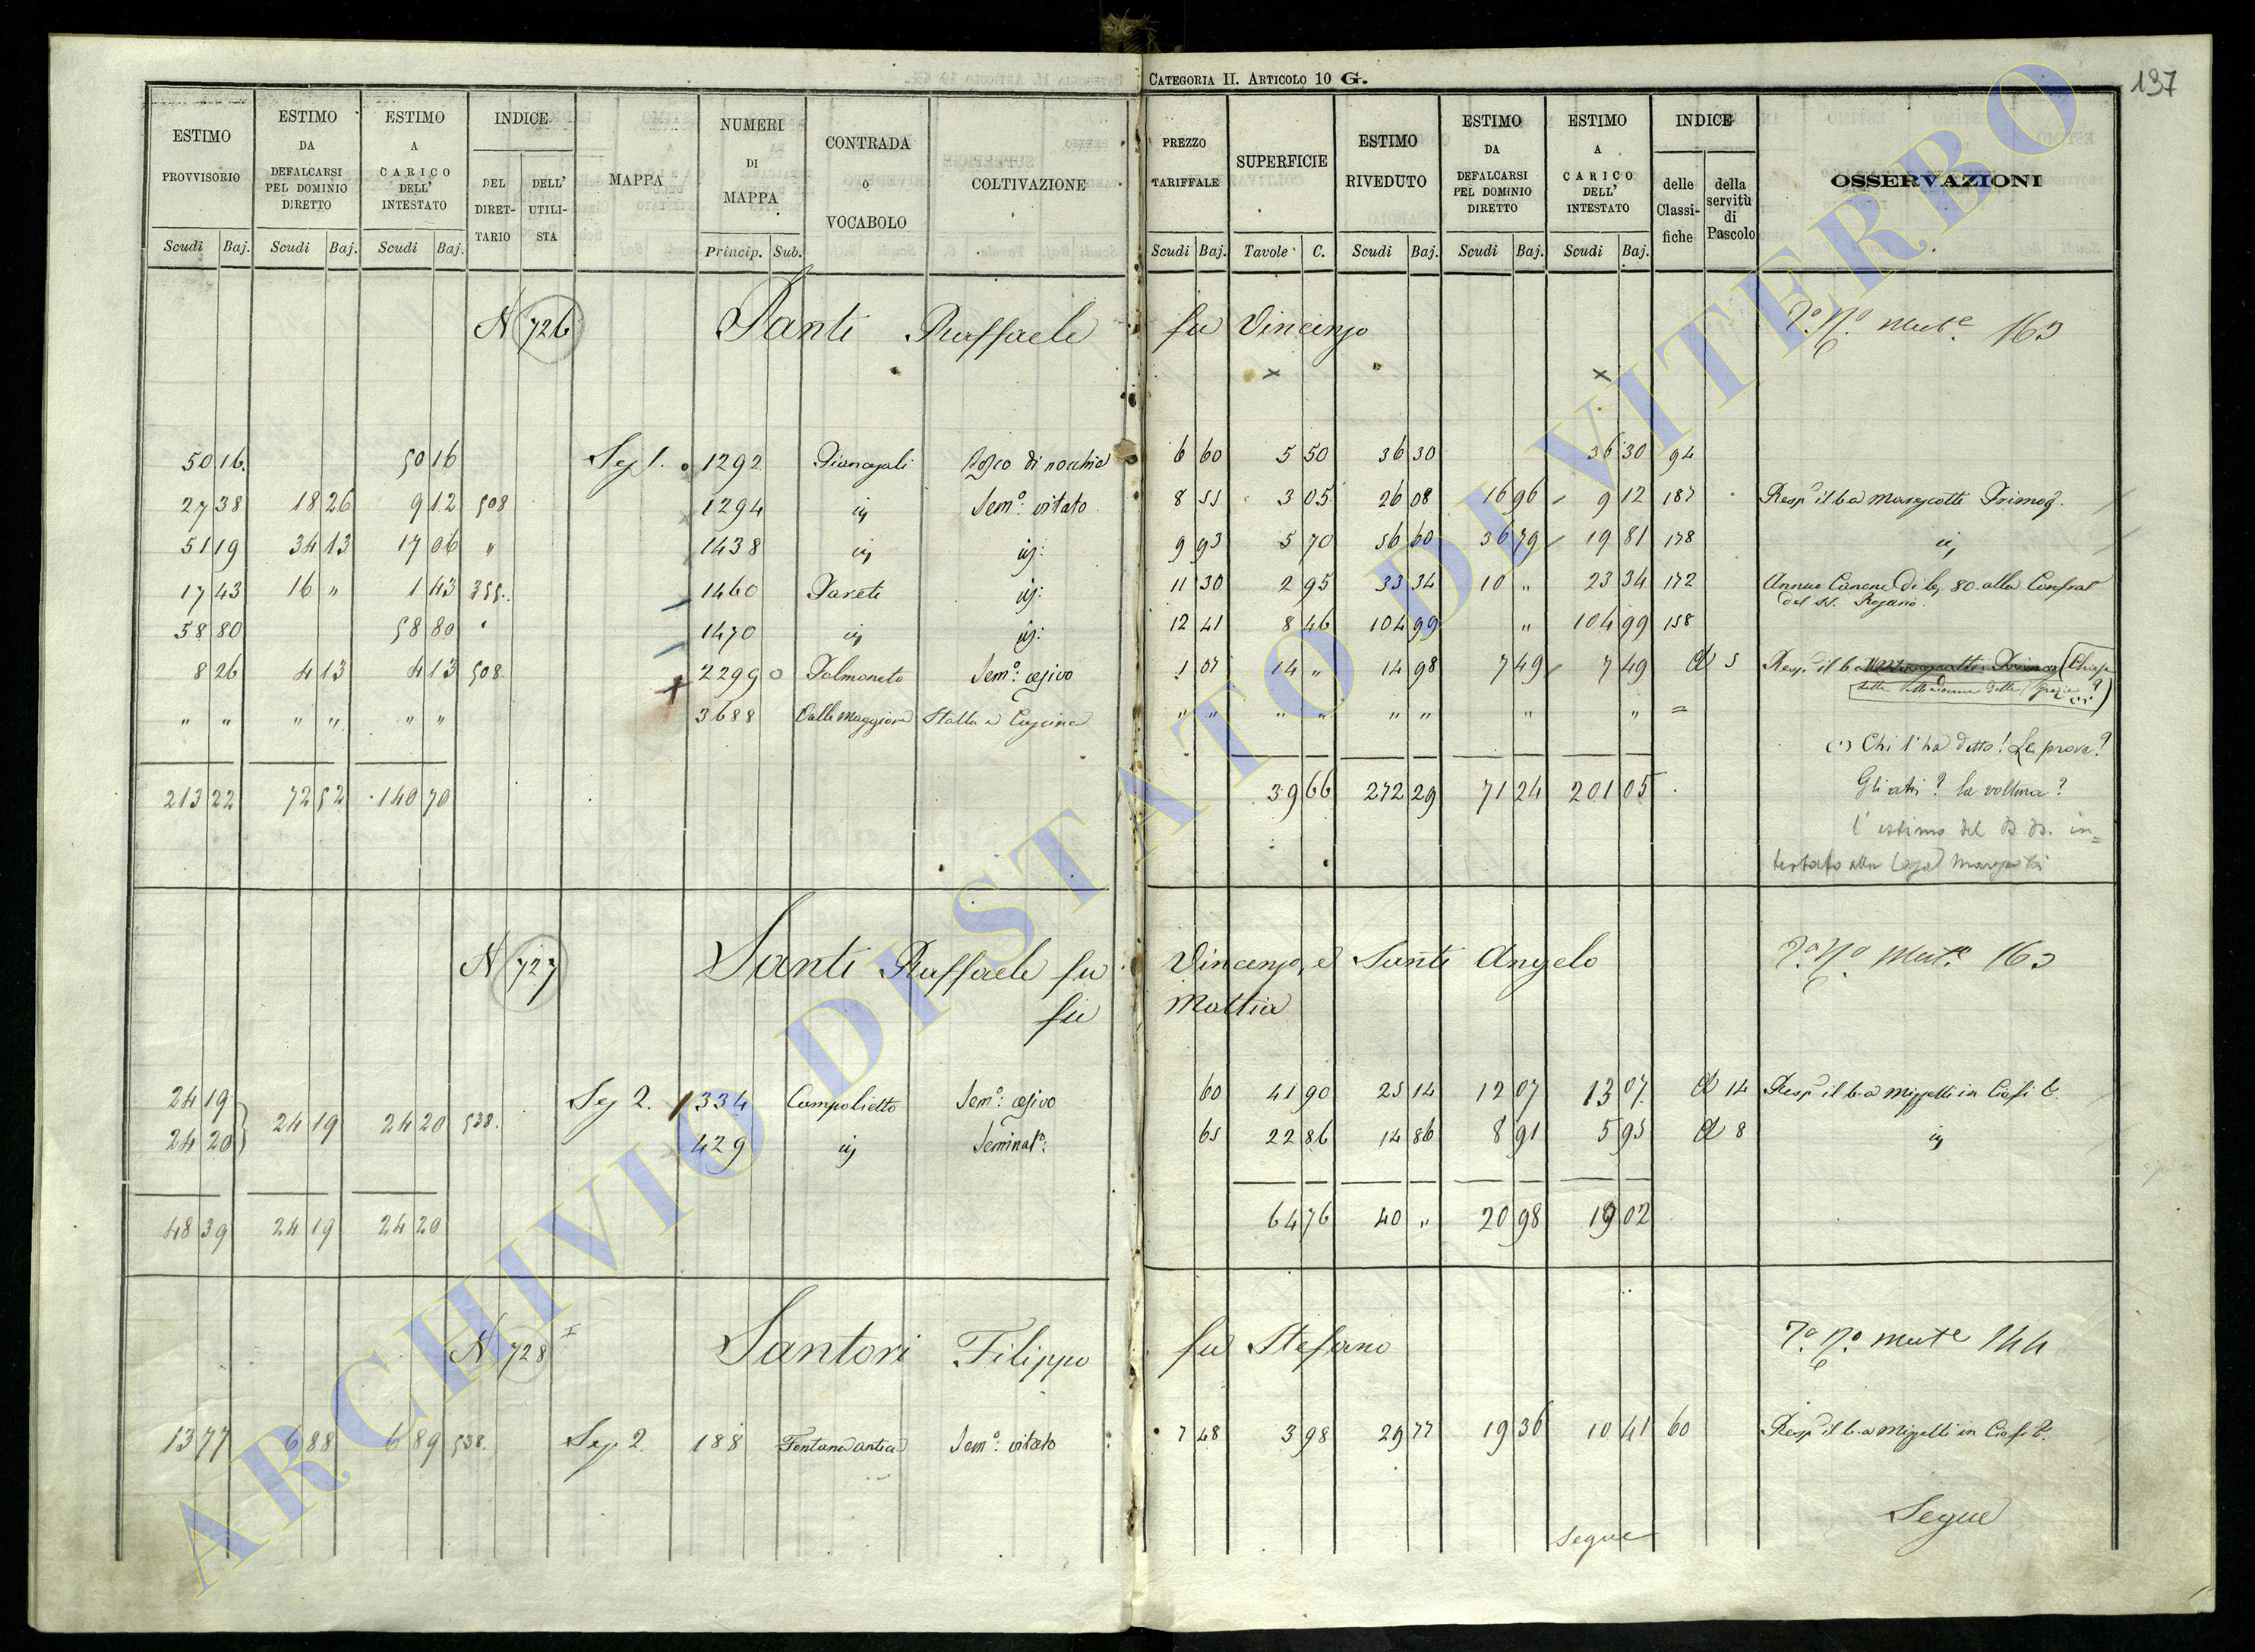 CATEGORIA II. ARTICOLO 10 G.
137
ESTIMO PROVVISORIO
ESTIMO DA DEFALCARSI PEL DOMINIO DIRETTO
ESTIMO A CARICO DELL' INTESTATO
INDICE
DEL DIRET-TARIO
DELL' UTILI-STA
MAPPA
NUMERI DI MAPPA
CONTRADA O VOCABOLO
COLTIVAZIONE
PREZZO TARIFFALE
SUPERFICIE
ESTIMO RIVEDUTO
ESTIMO DA DEFALCARSI PEL DOMINIO DIRETTO
ESTIMO A CARICO DELL' INTESTATO
INDICE
delle Classi-fiche
della servitù di Pascolo
OSSERVAZIONI
Scudi Baj. Scudi Baj. Scudi Baj. Princip. Sub. Scudi Baj. Tavole C. Scudi Baj. Scudi Baj. Scudi Baj.
N 726 Santi Raffaele fu Vincenzo 163
50 16 50 16 Sez 1. 1292 Piancagali Bosco di nocchie 6 60 5 50 36 30 36 30 94
27 38 18 26 9 12 508 1294 Sem.o vitato 8 55 3 05 26 08 16 96 9 12 187 Resp. il b. a Marescotti Primog.
51 19 34 13 17 06 " 1438 9 93 5 70 56 60 36 79 19 81 178
17 43 16 " 1 43 355 1460 Pareti 11 30 2 95 33 34 10 " 23 34 172 Annuo Canone di b. 80. alla Confrat
del SS. Rosario.
58 80 58 80 1470 12 41 8 46 104 99 " 104 99 158
8 26 4 13 4 13 508 2299 0 Palmoneto Sem.o cesivo 1 07 14 " 14 98 7 49 7 49 d 5 Resp. il b. a (Chiesa
della Madonna delle Grazie?
" " " " " " 3688 Valle Maggiore Stalla e Cascina " " " " " " " " =
(1) Chi l'ha detto! Le prove?
213 22 72 52 140 70 39 66 272 29 71 24 201 05 Gli atti? la voltura?
l'estimo del D. D. in=
testato alla Marescotti
N 727 Santi Raffaele fu Vincenzo, e Santi Angelo 163
fu Mattia
24 19 24 19 24 20 538. Sez 2. 334 Campolietto Sem.o cesivo 60 41 90 25 14 12 07 13 07 d 14 Resp. il b. a Mizzelli in Ciofi C.
24 20 429 Seminat.o 65 22 86 14 86 8 91 5 95 d 8
48 39 24 19 24 20 64 76 40 " 20 98 19 02
N 728 Santori Filippo fu Stefano 144
13 77 6 88 6 89 538. Sez 2. 188 Fontana antica Sem.o vitato 7 48 3 98 29 77 19 36 10 41 60 Resp. il b. a Mizzelli in Ciofi C.
Segue
Segue
ARCHIVIO DI STATO DI VITERBO